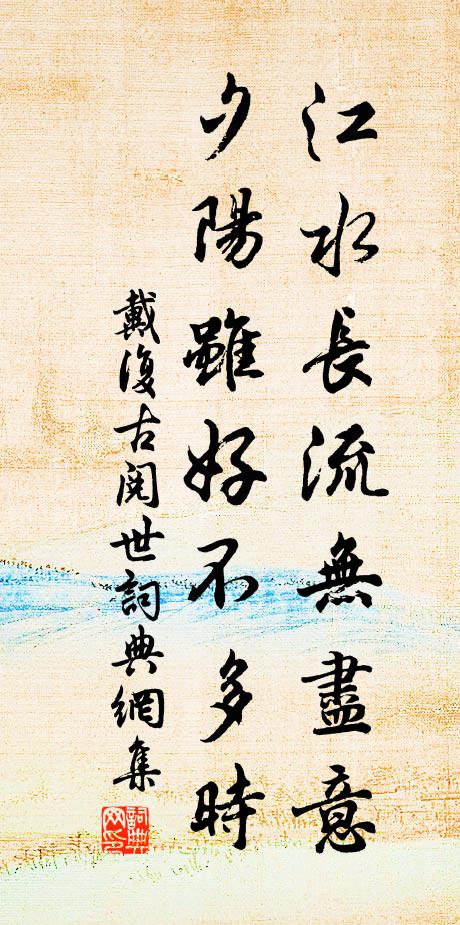 江水長流無盡意
夕陽雖好不多時
戴復古閱世詞典網集
詞典网印